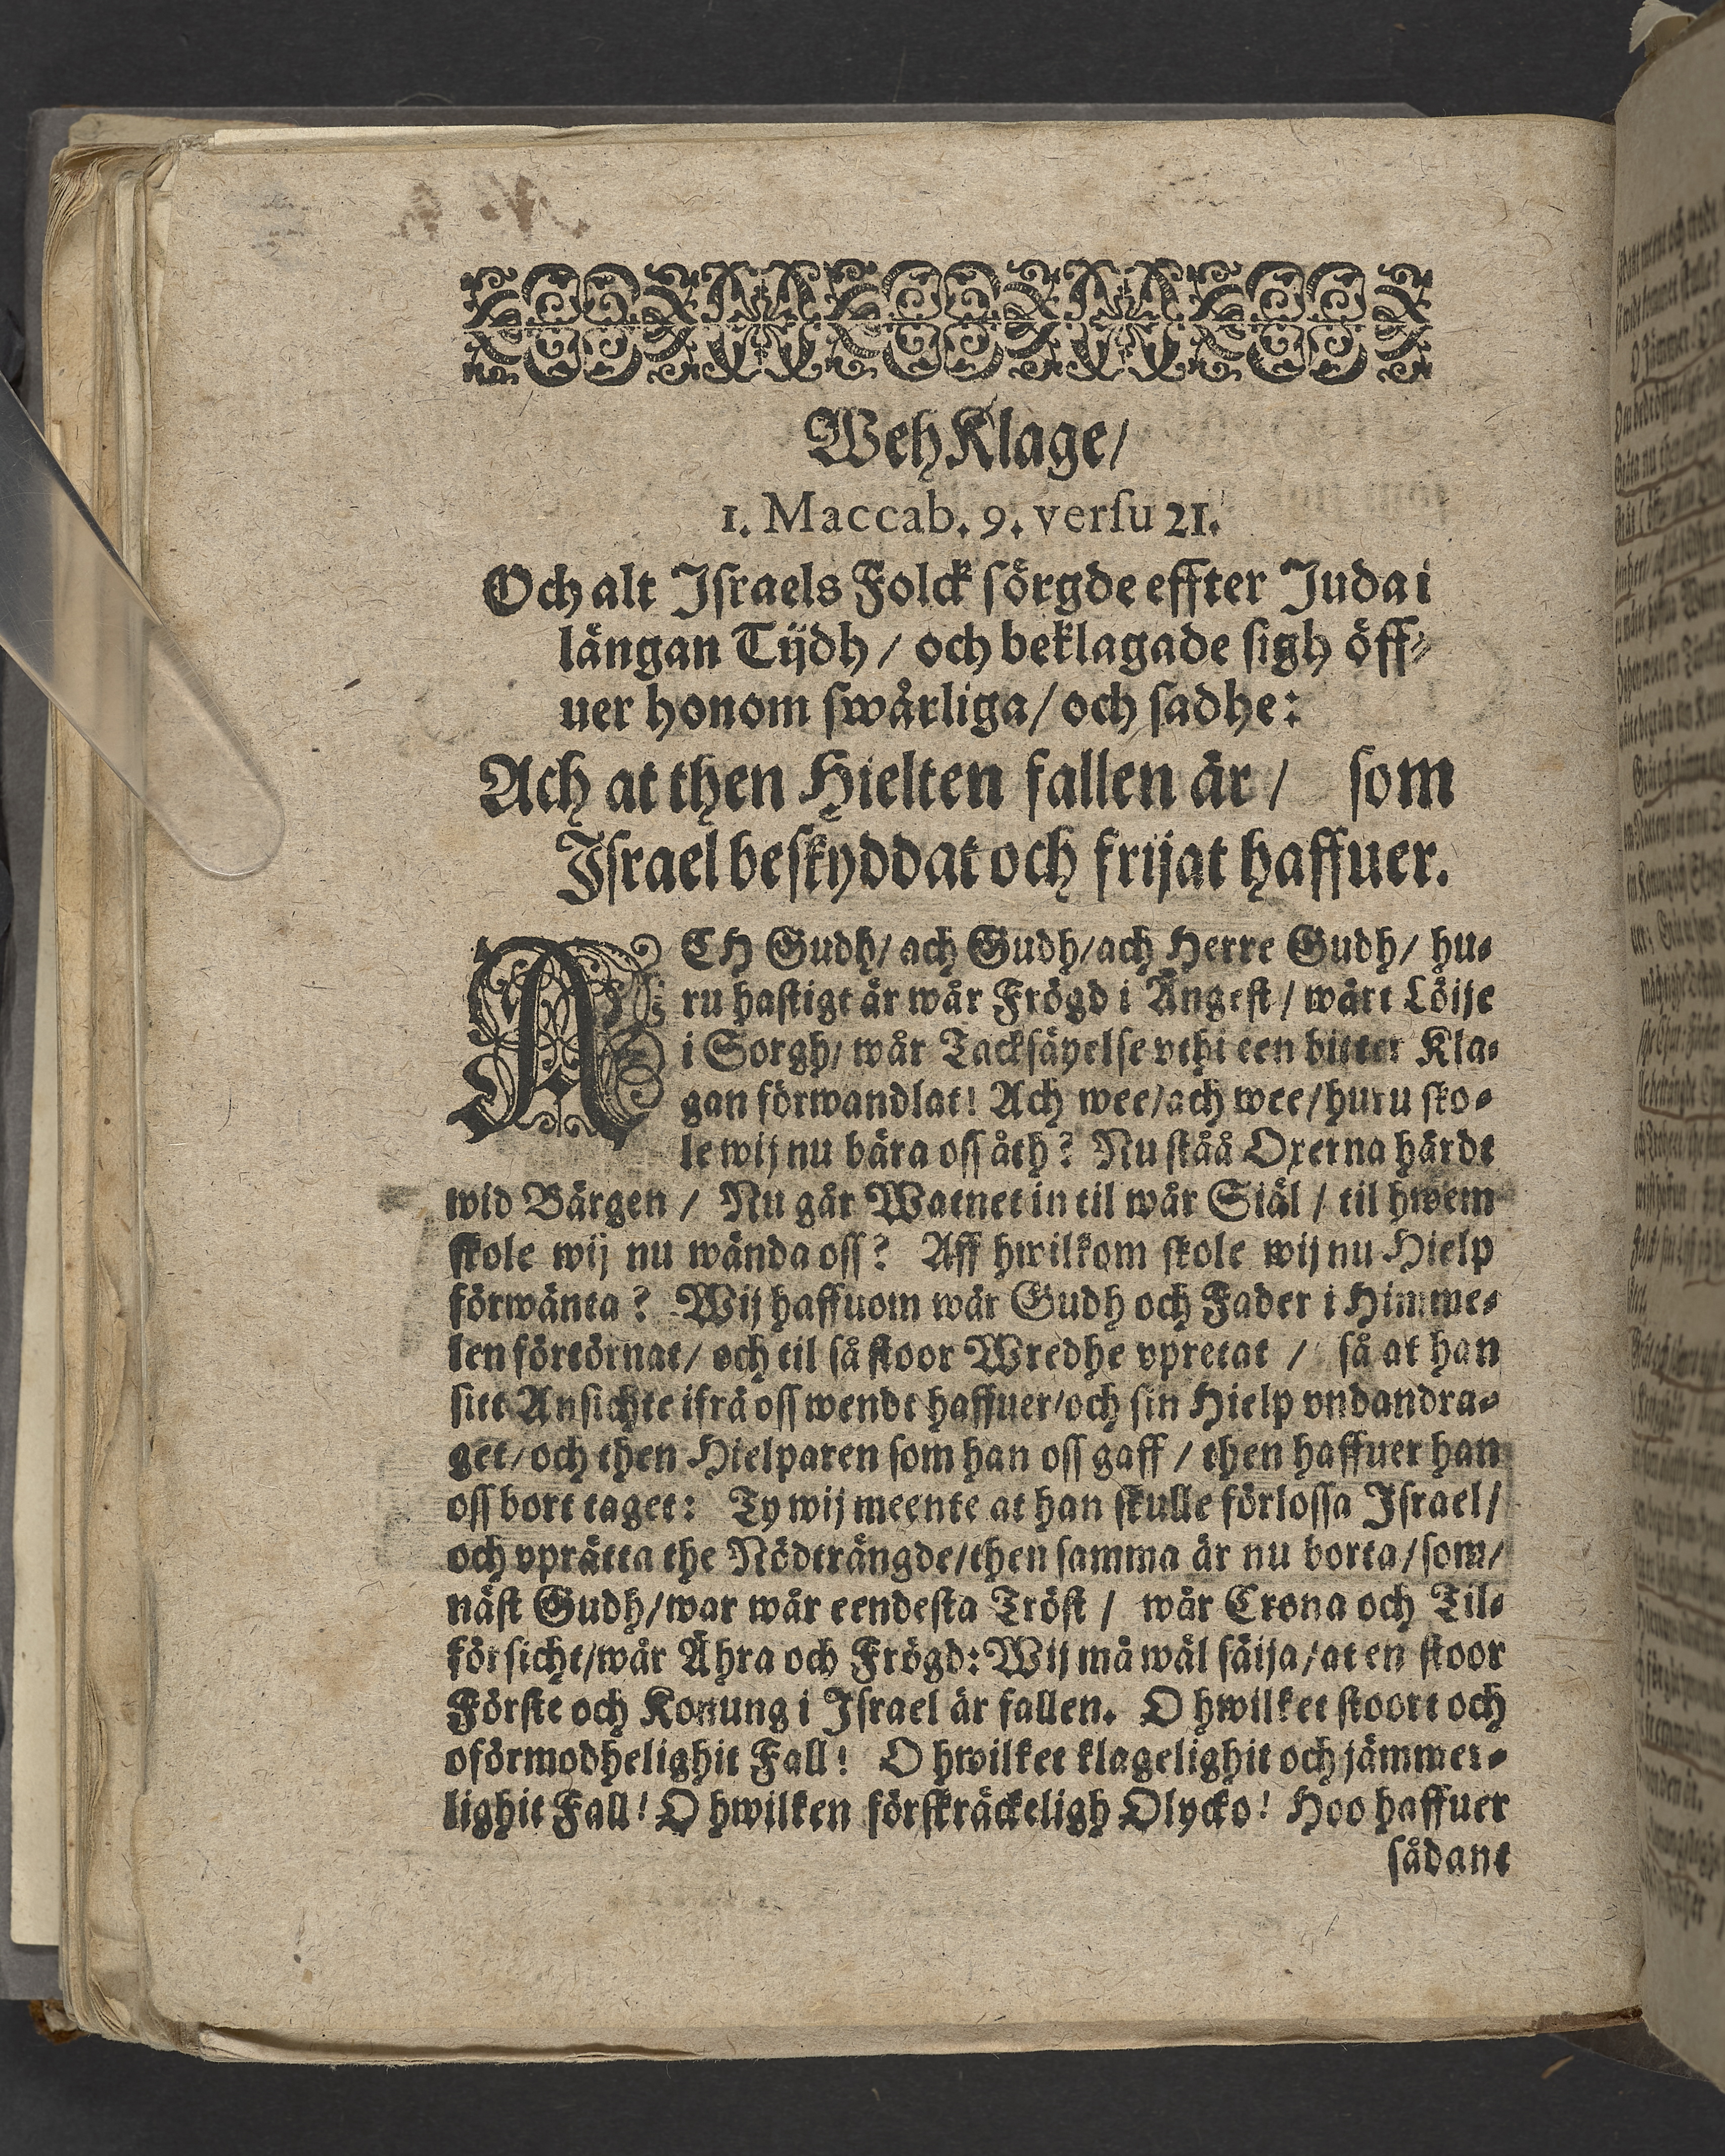 WehKlage/
1. Maccab. 9. verſu 21.
Och alt Iſraels Folck ſörgde effter Juda i
långan Tijdh / och beklagade ſigh öff-
uer honom ſwårliga / och ſadhe:
Ach at then Hielten fallen är / ſom
Iſrael beſkyddat och frijat haffuer.
ACH Gudh/ ach Gudh/ ach Herre Gudh/ hu-
ru haſtigt är wår Frögd i Ångeſt / wårt Löije
i Sorgh/ wår Tackſäyelſe vthi een bitter Kla-
gan förwandlat! Ach wee/ach wee/huru ſko-
le wij nu bära oſſ åth? Nu ſtåå Oxerna härdt
wid Bärgen / Nu går Watnet in til wår Siäl / til hwem
ſkole wij nu wända oſſ? Aff hwilkom ſkole wij nu Hielp
förwänta? Wij haffuom wår Gudh och Fader i Himme-
len förtörnat/ och til ſå ſtoor Wredhe vpretat / ſå at han
ſitt Anſichte ifrå oſſ wendt haffuer/och ſin Hielp vndandra-
get/ och then Hielparen ſom han oſſ gaff / then haffuer han
oſſ bort taget: Ty wij meente at han ſkulle förloſſa Iſrael/
och vprätta the Nödträngde/then ſamma är nu borta/ſom/
näſt Gudh/war wår eendeſta Tröſt / wår Crona och Til-
förſicht/wår Ähra och Frögd: Wij må wäl ſäija/at en ſtoor
Förſte och Konung i Iſrael är fallen. O hwilket ſtoort och
oförmodhelighit Fall! O hwilket klagelighit och jämmer-
lighit Fall! O hwilken förſkräckeligh Olycko! Hoo haffuer
ſådant